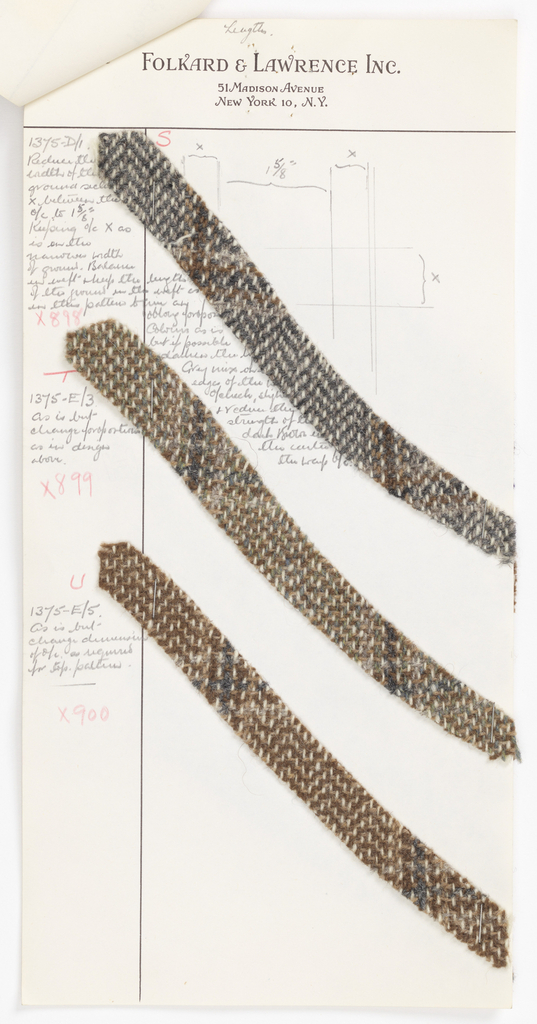 Lengths.
FOLKARD & LAWRENCE INC.
51 MADISON AVENUE
NEW YORK 10, N.Y.
S
1375-D/1.
Reduce the
width of the
ground
X between the
o/c to 1 5/8"
Keeping o/c X as
is on the
narrower width
of ground. Balance
in weft keep the lengths
of the ground in the weft as
in this pattern
Colour as is
but if possible
darken the
Grey mix on
edges of the
of check,
& reduce the
strength of the
dark
the centre
the warp o/c.
X
1 5/8"
X
X
X898
T
1375-E/3
As is but
change proportions
as in design
above.
X899
U
1375-E/5.
As is but
change dimensions
of o/c. as required
for top. pattern.
X900